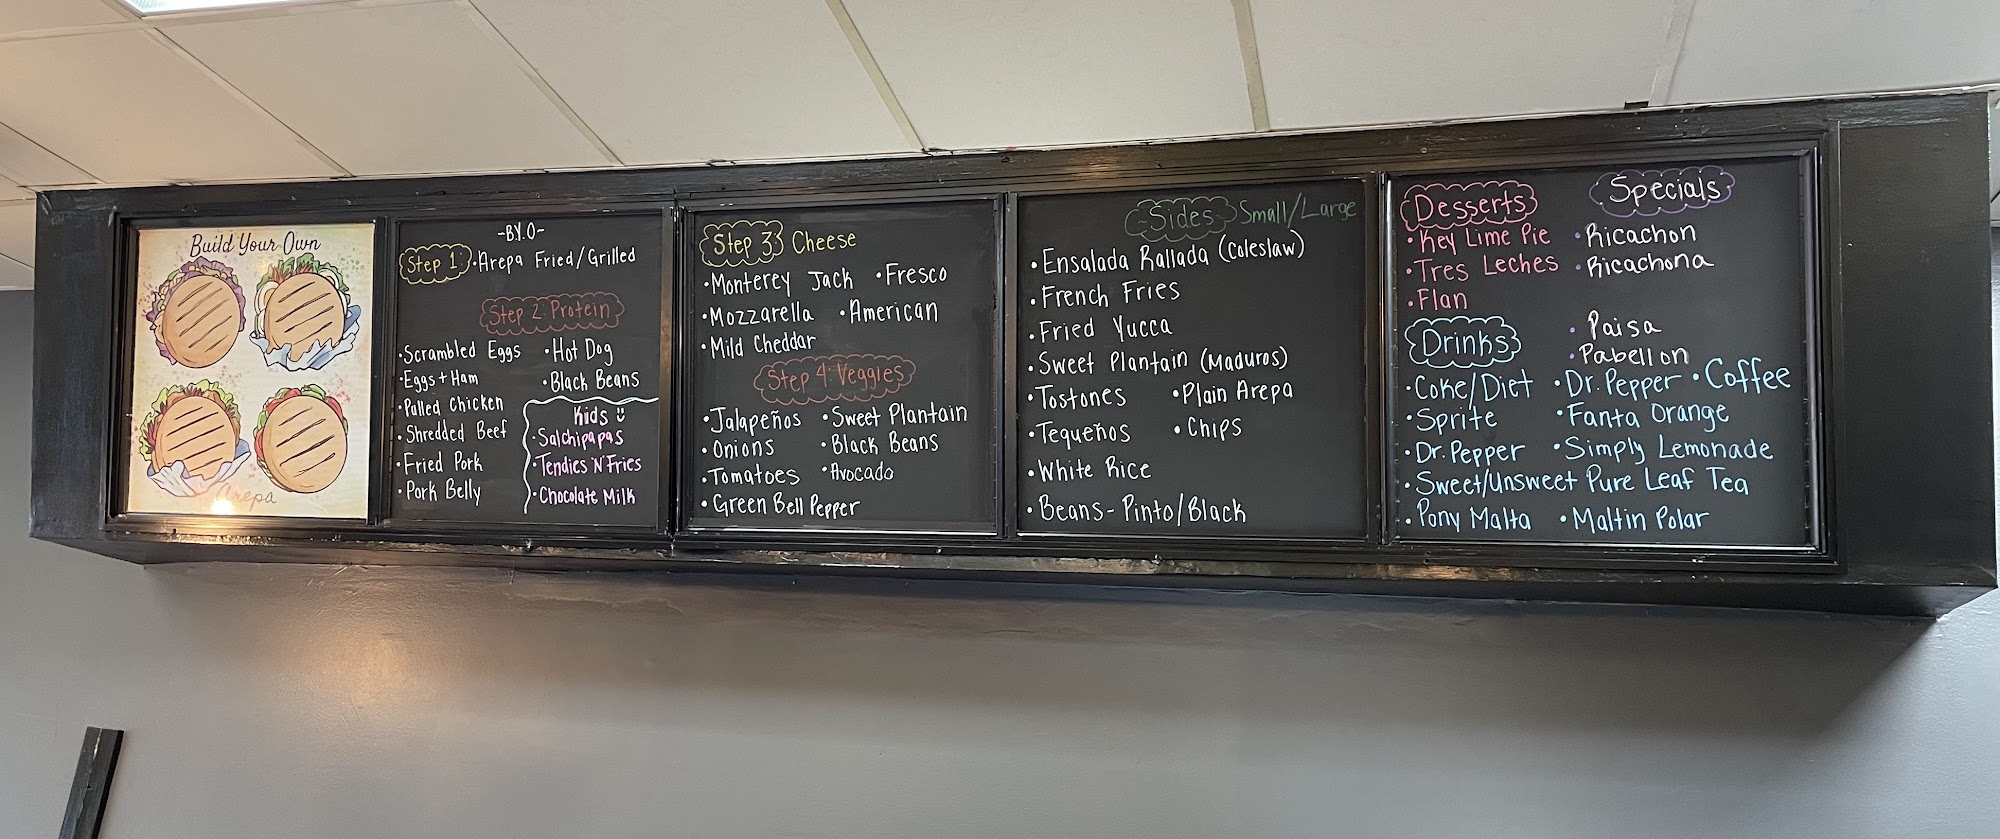 Build Your Own
Arepa
-B.Y.O-
Step 1: • Arepa Fried/Grilled
Step 2: Protein
• Scrambled Eggs
• Eggs + Ham
• Pulled Chicken
• Shredded Beef
• Fried Pork
• Pork Belly
• Hot Dog
• Black Beans
Kids
• Salchipapas
• Tendies 'N' Fries
• Chocolate Milk
Step 3: Cheese
• Monterey Jack • Fresco
• Mozzarella • American
• Mild Cheddar
Step 4: Veggies
• Jalapeños • Sweet Plantain
• Onions • Black Beans
• Tomatoes • Avocado
• Green Bell Pepper
Sides Small/Large
• Ensalada Rallada (Coleslaw)
• French Fries
• Fried Yucca
• Sweet Plantain (Maduros)
• Tostones • Plain Arepa
• Tequeños • Chips
• White Rice
• Beans - Pinto/Black
Desserts
• Key Lime Pie
• Tres Leches
• Flan
Specials
• Ricachon
• Ricachona
• Paisa
• Pabellon
Drinks
• Coke/Diet • Dr. Pepper • Coffee
• Sprite • Fanta Orange
• Dr. Pepper • Simply Lemonade
• Sweet/Unsweet Pure Leaf Tea
• Pony Malta • Maltin Polar